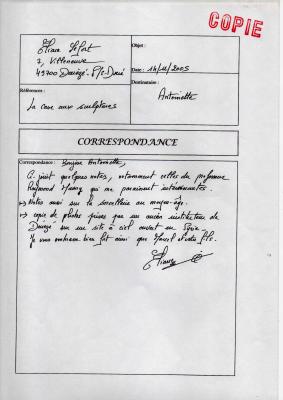 COPIE
Eliane Lefort
7, Villeneuve
49700 Denezé-S/s-Doué
Objet :
Date : 14/11/2005
Destinataire :
Antoinette
Références :
La cave aux sculptures
CORRESPONDANCE
Correspondance : Bonjour Antoinette,
Ci-joint quelques notes, notamment celles du professeur
Raymond qui me paraissent intéressantes.
→ Notes aussi sur la sorcellerie au moyen-âge.
→ copie de photos prises par un ancien instituteur de
Denezé sur un site à ciel ouvert en Syrie.
Je vous embrasse bien fort ainsi que et votre fils.
Eliane